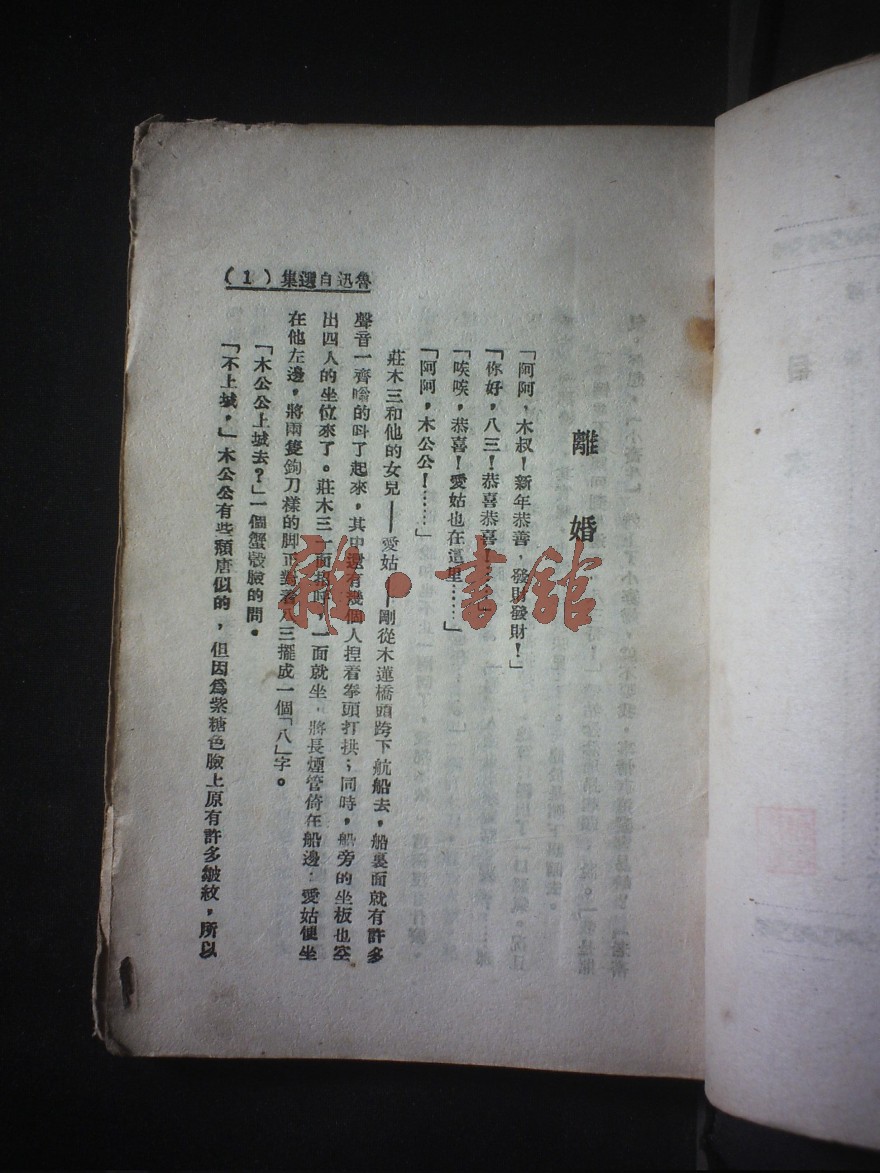 魯迅自選集（1）
離婚
「阿阿，木叔！新年恭喜，發財發財！」
「你好，八三！恭喜恭喜！……」
「唉唉，恭喜！愛姑也在這里……」
「阿阿，木公公！……」
莊木三和他的女兒——愛姑——剛從木蓮橋頭跨下航船去，船裏面就有許多
聲音一齊嗡的叫了起來，其中還有幾個人捏着拳頭打拱；同時，船旁的坐板也空
出四人的坐位來了。莊木三一面招呼，一面就坐，將長煙管倚在船邊；愛姑便坐
在他左邊，將兩隻鉤刀樣的脚正對着八三擺成一個「八」字。
「木公公上城去？」一個蟹殼臉的問。
「不上城，」木公公有些頹唐似的，但因爲紫糖色臉上原有許多皺紋，所以
雜·書館